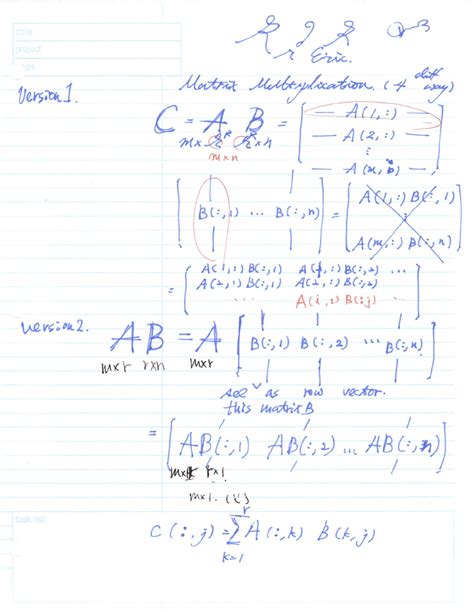 date
project
Eric.
Matrix Multiplication. (4 diff way)
Version 1.
C = A B = [ — A(1,:) —
m×r r×n — A(2,:) —
m×n ⋮
— A(m,:) — ]
[ B(:,1) ... B(:,n) ] = [ A(1,:) B(:,1)
⋮
A(m,:) B(:,n) ]
= [ A(1,:) B(:,1) A(1,:) B(:,2) ...
A(2,:) B(:,1) A(2,:) B(:,2)
... A(i,:) B(:,j) ... ]
Version 2. AB = A [ B(:,1) B(:,2) ... B(:,n) ]
m×r r×n m×r
see as row vector.
this matrix B
= [ AB(:,1) AB(:,2) ... AB(:,n) ]
m×r r×1
m×1.
task list
C(:,j) = r∑k=1 A(:,k) B(k,j)